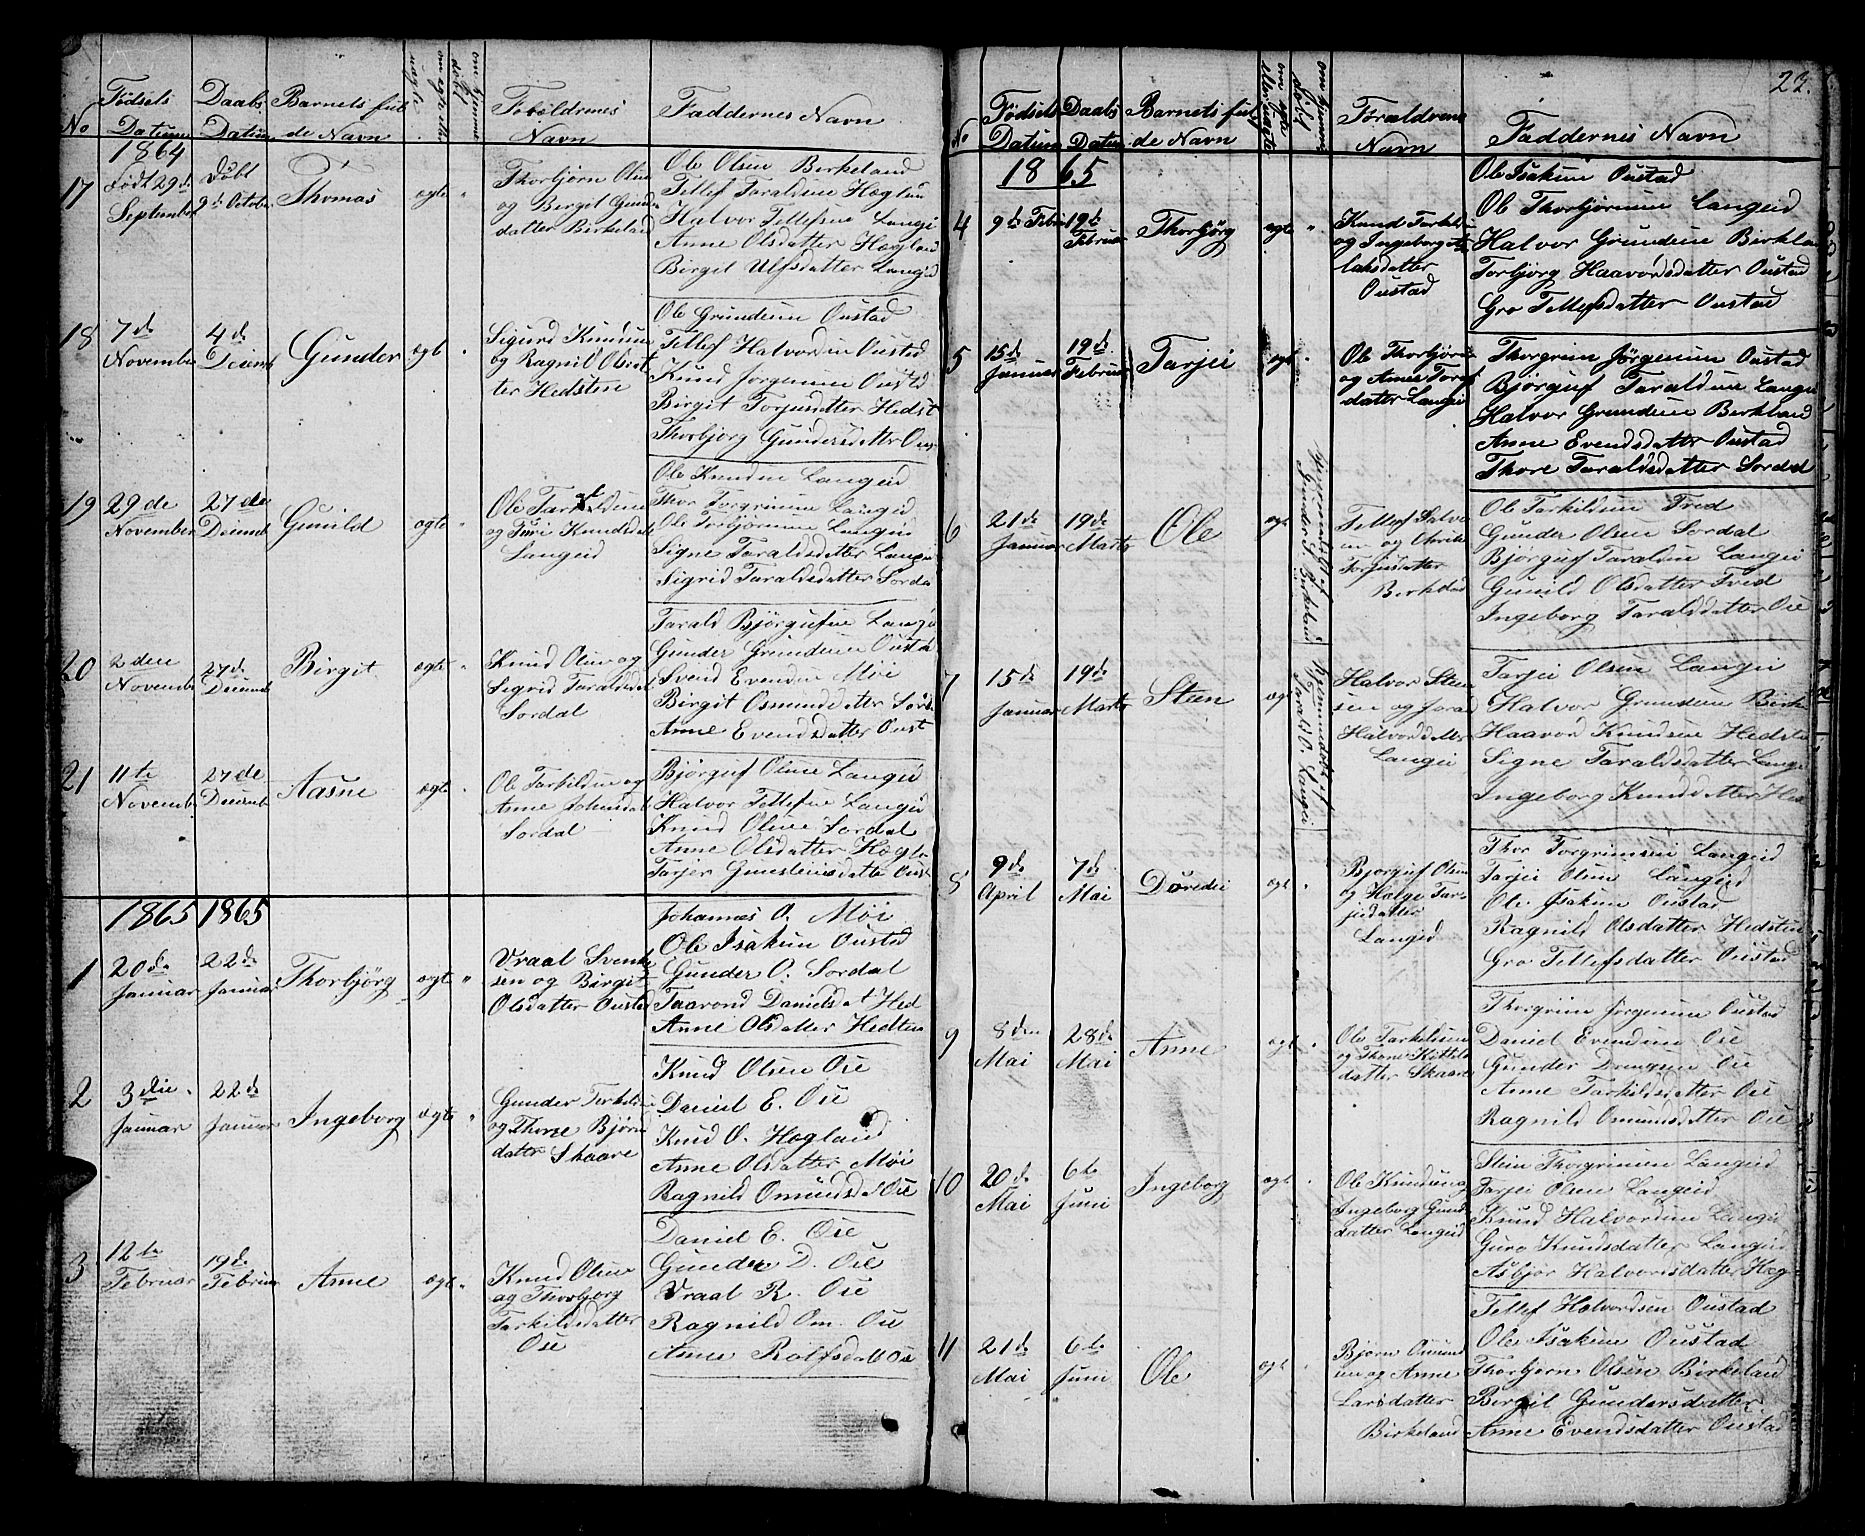 No
Fødsels
Datum
Daabs
Datum
Barnets ful
de Navn
om ægte eller
uægte
om hjemme
døbt
Foræeldrenes
Navn
Faddernes Navn
1864
17
Født 29de
September
Døbt
9de October
Thomas
ægte
"
Thorbjørn Olsen
og Birget Gund
datter Birkeland
Ole Olsen Birkeland
Tellef Taraldsen Høglan
Halvor Tellefsene Langei
Anne Olsdatter Høglan
Birgit Ulfsdatter Langeid
18
7de
November
4de
Decemb
Gunder
ægt
"
Sigurd Knudsen
og Ragnild Olsdat
ter Hedsten
Ole Grundesen Oustad
Tellef Halvordsen Oustad
Knud Jørgensen Oustd
Birgit Torjusdatter Hedst
Thorbjorg Gundersdatter Ous
19
29de
November
27de
Decemb
Gunild
ægte
"
Ole Taraldsene
og Turi Knudsdat
Langeid
Ole Knudsen Langeid
Thor Torgrimsen Langeid
Ole Torbjørnsen Langeid
Signe Taraldsdatter Langei
Sigrid Taraldsdatter Sorda
20
2den
Novemb
27de
Decemb
Birgit
ægte
"
Knud Olsen og
Sigrid Taraldsdat
Sordal
Tarald Bjørgufsen Langei
Gunder Grundesen Ousta
Svend Evendsen Møi
Birgit Osmundsdatter Sord
Anne Evendsdatter Oust
21
11te
Novemb
27de
Decemb
Aasne
ægte
"
Ole Tarkildsen og
Anne Johnsdat
Sordal
Bjørguf Olsene Langeid
Halvor Tellefsen Langeid
Knud Olsene Sordal
Anne Olsdatter Hogla
Tarjer Gunsteinsdatter Oust
1865 1865
1
20de
Januar
22de
Januar
Thorbjörg
ægte
"
Vraal Svend
sen og Birgit
Olsdatter Oustad
Johannes O. Møi
Ole Isaksen Oustad
Gunder O. Sordal
Taarond Danielsdat Hed
Anne Olsdatter Hedsten
2
3die
Januar
22de
Januar
Ingeborg
ægte
"
Gunder Tarkels
og Thorre Bjørns
datter Skaare
Knud Olsen Ose
Daniel E. Ose
Knud O. Høgland
Anne Olsdatter Møi
Ragnild Omundsdat Ose
3
12te
Februar
19de
Februar
Anne
ægt
"
Knud Olsen
og Thorbjorg
Tarkildsdatter
Ose
Daniel E. Ose
Gunder D. Ose
Vraal R. Ose
Ragnild Om. Ose
Anne Rolfsdatt Ose
23.
No
Fødsels
Datum
Daabs
Datum
Barnets ful
de Navn
om ægte
eller uægte
om hjemme
døbt
Forældrenes
Navn
Faddernes Navn
1865
4
9de Febr
19de
Februar
Thorbjørg
ægte
"
Knud Tarkels
og Ingeborg As
laksdatter
Oustad
Ole Isaksen Oustad
Ole Thorbjørnsen Langeid
Halvor Grundesen Birklan
Torbjorg Haavordsdatter Oustad
Gro Tellefsdatter Oustad
5
15de
Januar
19de
Februar
Tarjei
ægte
Ole Thorbjørn
og Anne Torg
datter Langei
Thorgrim Jørgensen Oustad
Bjørguf Taraldsen Lange
Halvor Grundesen Birkland
Anne Evendsdatter Oustad
Thore Taraldsdatter Sordal
6
21de
Januar
19de
Marts
Ole
ægt
hjemmedøbt af
Gunder G. Birkeland
Tellef Salve
sen og
Torjusdatter
Birkelad
Ole Tarkildsen Tred
Gunder Olsen Sordal
Bjørguf Taraldsen Langei
Gunild Olsdatter Tred
Ingeborg Taraldsdatter Ose
7
15de
Januar
19de
Marts
Steen
ægt
hjemmedøbt af
Tarald O. Langei
Halvor Steen
sen og
Halvordsdatter
Langei
Tarjei Olsen Langei
Halvor Grundesen Birk
Haavor Knudsen Hedste
Signe Taraldsdatter Lange
Ingeborg Knudsdatter Hed
8
9de
April
7de
Mai
Dørdei
ægt
"
Bjorguf Olsen
og Hælge Tar-
jeidatter
Langeid
Thor Torgrimsen Langeid
Tarjei Olsen Langeid
Ole Isaksen Oustad
Ragnild Olsdatter Hedsten
Gro Tellefsdatter Oustad
9
8den
Mai
28de
Mai
Anne
ægt
"
Ole Tarkelsen
og Thone Kittels
datter Skaare
Thorgrim Jørgensen Oustad
Daniel Evendsen Ose
Gunder Drengsen Ose
Anne Tarkildsdatter Ose
Ragnild Omunsdatter Ose
10
20de
Mai
6te
Juni
Ingeborg
ægt
"
Ole Knudsen og
Ingeborg Gund
datter Langeid
Stein Thorgrimsen Langeid
Tarjei Olsen Langeid
Knud Halvordsen Langei
Guro Knudsdatter Langeid
Asbjør Halvorsdatter Høg
11
21de
Mai
6te
Juni
Ole
ægt
"
Bjørn Omund
sen og Anne
Larsdatter
Birkeland
Tellef Halvordsen Oustad
Ole Isaksene Oustad
Thorbjorn Olsen Birkeland
Birgit Gundersdatter
Anne Evendsdatter Oustad